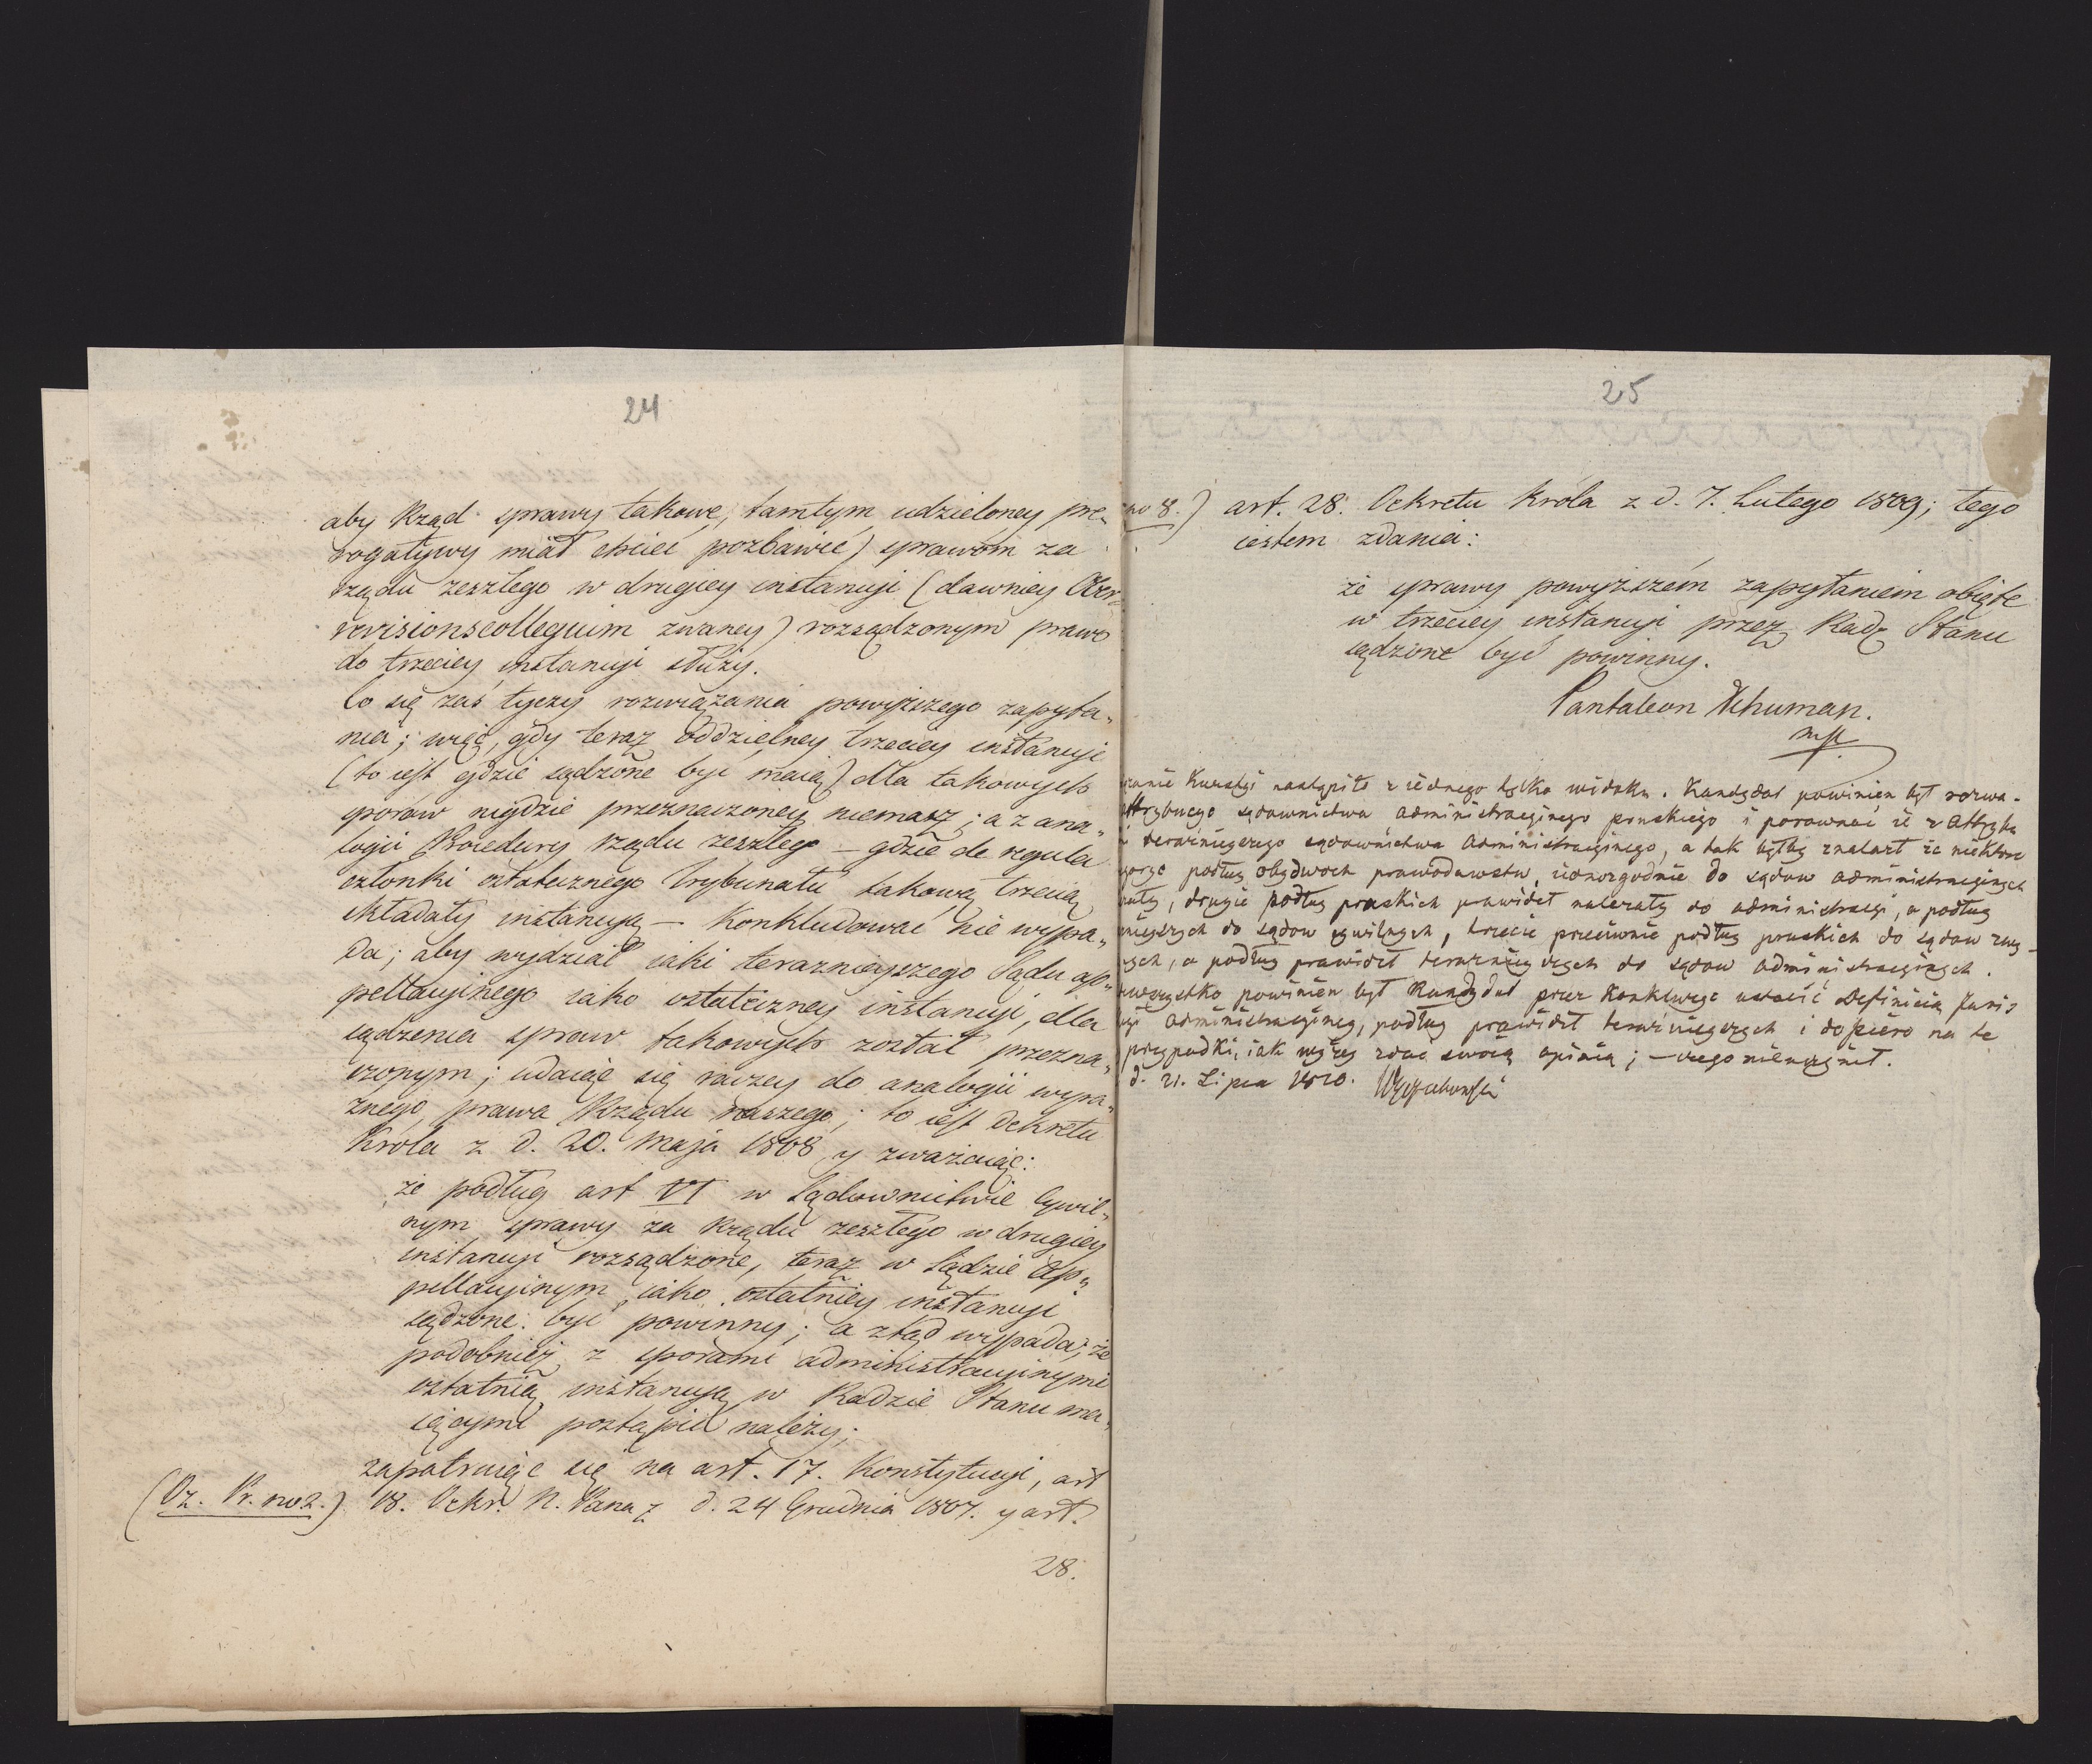 24
aby Rząd sprawy takowe, tamtym udzieloney pre„
rogatywy miał chcieć pozbawić) sprawom za
rządu zeszłego w drugiey instancyi (dawniey Ober
revisionscollegium zwaney) rozsądzonym prawo
do trzeciey instancyi służy.
Co się zaś tyczy rozwiązania powyższego zapyta„
nia; więc, gdy teraz oddzielney trzeciey instancyi
(to iest gdzie sądzone być maią) dla takowych
sporów nigdzie przeznaczoney niemasz; a z ana„
logii Procedury rządu zeszłego — gdzie de regula
członki ostatecznego Trybunału takową trzecią
składały instancyą — konkludować nie wypa„
da; aby wydział iaki teraznieyszego Sądu ap„
pellacyinego iako ostateczney instancyi, dla
sądzenia spraw takowych został przezna„
czonym; udaiąc się raczey do analogii wyra„
źnego prawa Rządu naszego; to iest Dekretu
Króla z d. 20. Maja 1808 y zważaiąc:
że podług art VI w Sądownictwie Cywil„
nym sprawy za Rządu zeszłego w drugiey
instancyi rozsądzone, teraz w Sądzie Ap„
pellacyinym iako ostatniey instancyi
sądzone być powinny; a ztąd wypada; że
podobnież z sporami administracyinymi
ostatnią instancyą w Radzie Stanu ma„
iącymi postąpić należy;
zapatruiąc się na art. 17. Konstytucyi, art
(Dz. Pr. no 2.) 18. Dekr. N. Pana z d. 24 Grudnia 1807. y art.
28.
25
no 8.) art. 28. Dekretu Króla z d. 7. Lutego 1809; tego
iestem zdania:
że sprawy powyższém zapytaniem obięte
w trzeciey instancyi przez Radę Stanu
sądzone być powinny.
Pantaleon Schuman.
mp
nastąpiło z iednego tylko widoku. Kandydat powinien był rozwa-
sądownictwa administracyinego pruskiego i porównać ie z Attrybu
teraźnieyszego sądownictwa Administracyinego, a tak byłby znalazł że niektóre
podług obydwoch prawodawstw, iednozgodnie do sądow administracyinych
drugie podług pruskich prawideł należały do administracyi, a podług
do sądow cywilnych, trzecie przeciwnie podług pruskich do sądow zwy-
a podług prawideł teraźnieyszych do sądow administracyinych.
powinien był Kandydat przez konkluzyę ustalić Definicią Juris
administracyiney, podług prawideł teraźnieyszych i dopiero na te
przypadki, iak wyżey zdać swoią opinią; — czego nieuczynił.
d. 21. Lipca 1810.